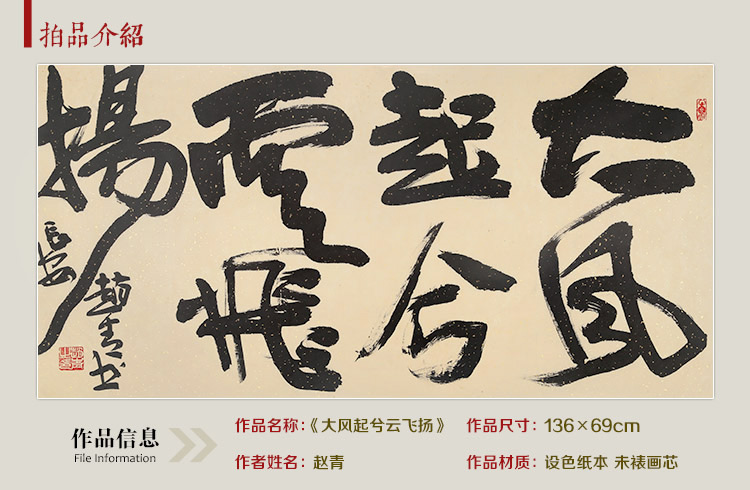 拍品介紹
大風
起兮
雲飛
揚
長安
趙青書
作品信息
File Information
作品名称：《大风起兮云飞扬》
作品尺寸：136×69cm
作者姓名：赵青
作品材质：设色纸本 未裱画芯